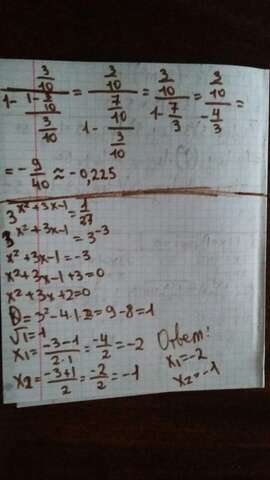 (3/10)/(1-(1-3/10)/(3/10)) = (3/10)/(1-(7/10)/(3/10)) = (3/10)/(1-7/3) = (3/10)/(-4/3) =
= -9/40 ≈ -0,225
3^(x²+3x-1) = 1/27
3^(x²+3x-1) = 3^(-3)
x²+3x-1=-3
x²+3x-1+3=0
x²+3x+2=0
D=3²-4·1·2=9-8=1
√1=1
x1=(-3-1)/(2·1)=-4/2=-2
x2=(-3+1)/2=-2/2=-1
Ответ:
x1=-2
x2=-1